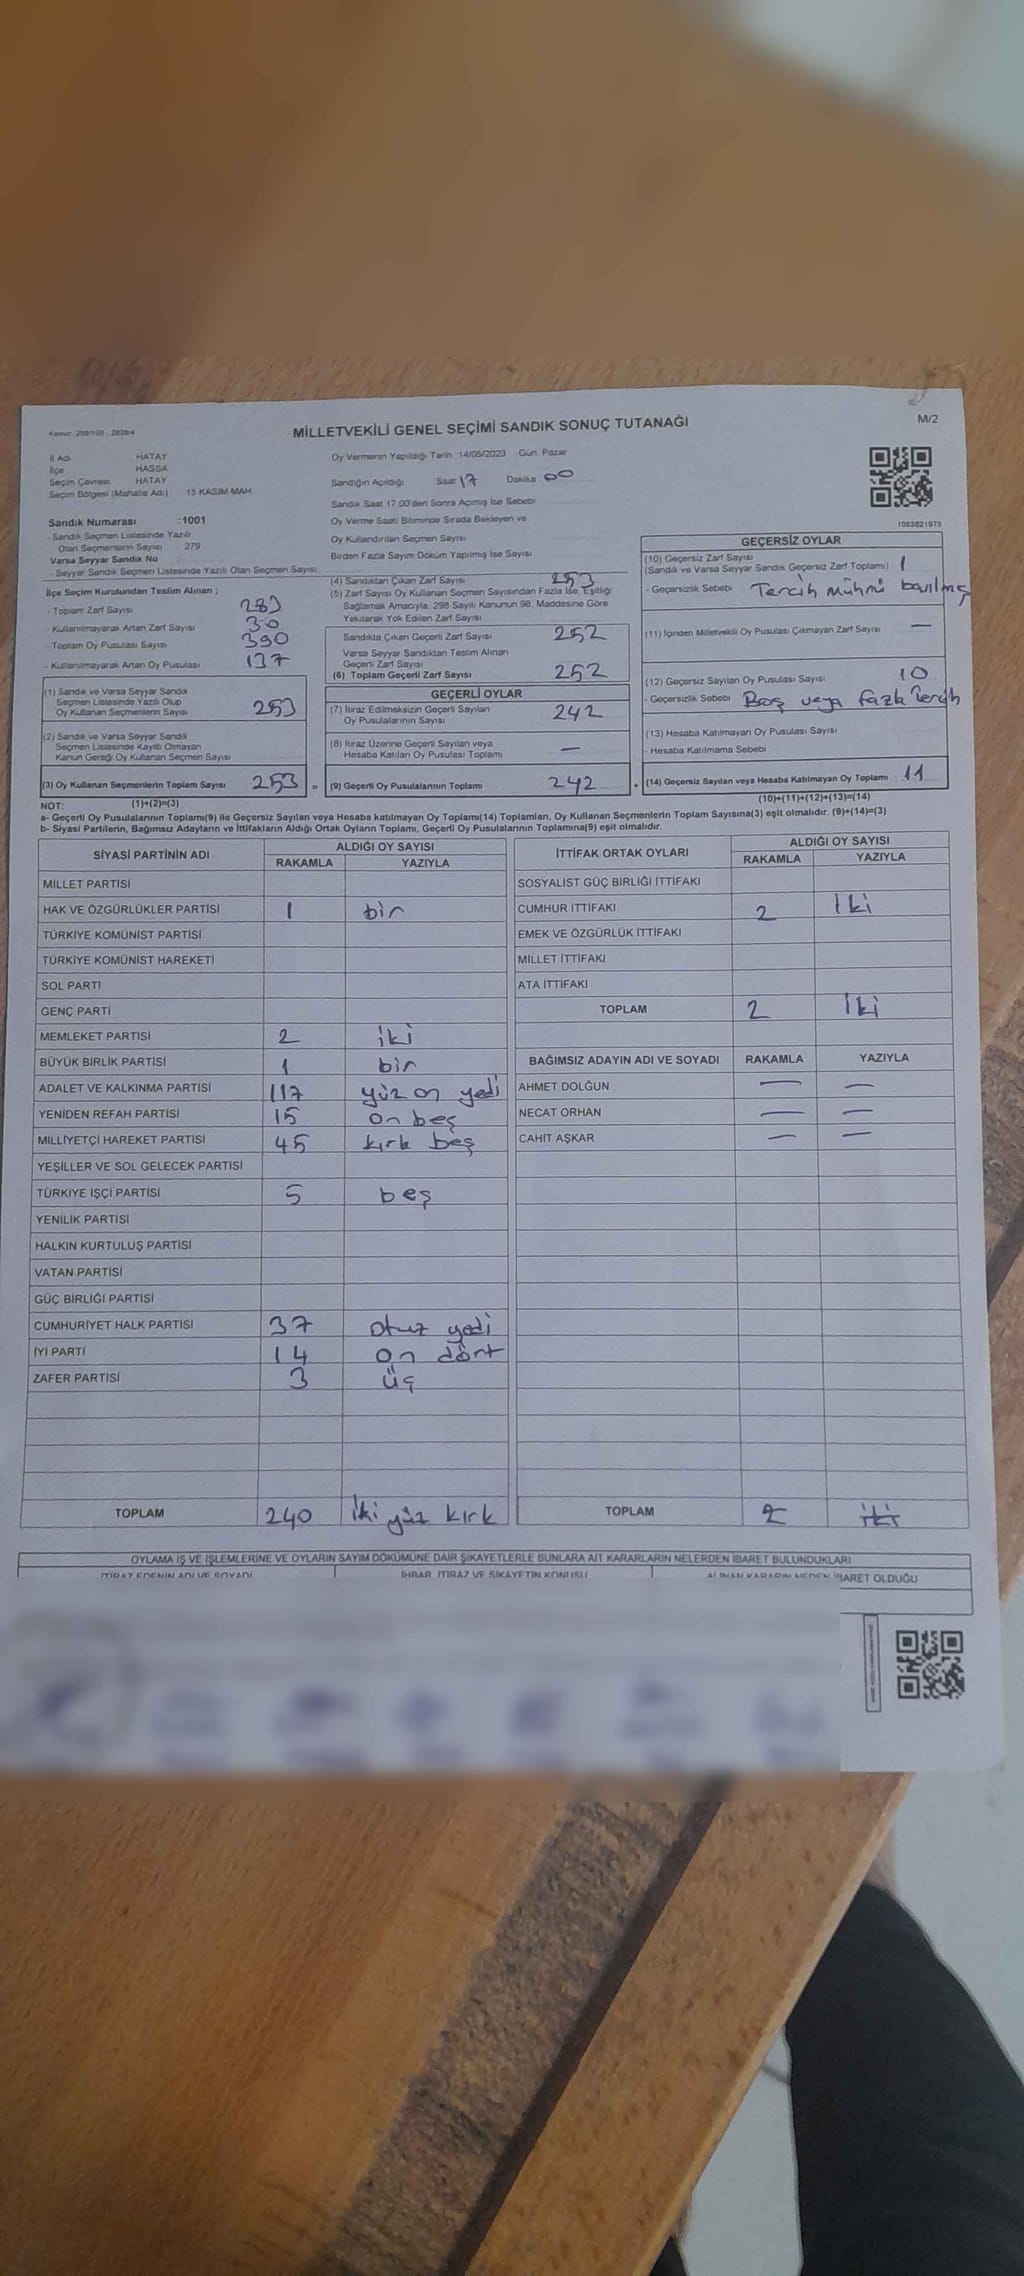 Kanun: 298/105 , 2839/4
MİLLETVEKİLİ GENEL SEÇİMİ SANDIK SONUÇ TUTANAĞI
M/2
İl Adı HATAY
İlçe HASSA
Seçim Çevresi HATAY
Seçim Bölgesi (Mahalle Adı) 15 KASIM MAH.
Sandık Numarası :1001
- Sandık Seçmen Listesinde Yazılı
Olan Seçmenlerin Sayısı 279
Varsa Seyyar Sandık No
- Seyyar Sandık Seçmen Listesinde Yazılı Olan Seçmen Sayısı:
Oy Vermenin Yapıldığı Tarih :14/05/2023 Gün: Pazar
Sandığın Açıldığı Saat 17 Dakika 00
Sandık Saat 17:00'den Sonra Açılmış İse Sebebi
Oy Verme Saati Bitiminde Sırada Bekleyen ve
Oy Kullandırılan Seçmen Sayısı
Birden Fazla Sayım Döküm Yapılmış İse Sayısı
1083821975
İlçe Seçim Kurulundan Teslim Alınan ;
- Toplam Zarf Sayısı 283
- Kullanılmayarak Artan Zarf Sayısı 30
- Toplam Oy Pusulası 390
- Kullanılmayarak Artan Oy Pusulası 137
(1) Sandık ve Varsa Seyyar Sandık
Seçmen Listesinde Yazılı Olup
Oy Kullanan Seçmenlerin Sayısı 253
(2) Sandık ve Varsa Seyyar Sandık
Seçmen Listesinde Kayıtlı Olmayan
Kanun Gereği Oy Kullanan Seçmen Sayısı
(3) Oy Kullanan Seçmenlerin Toplam Sayısı 253 =
(4) Sandıktan Çıkan Zarf Sayısı 253
(5) Zarf Sayısı Oy Kullanan Seçmen Sayısından Fazla İse, Eşitliği
Sağlamak Amacıyla, 298 Sayılı Kanunun 98. Maddesine Göre
Yakılarak Yok Edilen Zarf Sayısı
Sandıkta Çıkan Geçerli Zarf Sayısı 252
Varsa Seyyar Sandıktan Teslim Alınan
Geçerli Zarf Sayısı
(6) Toplam Geçerli Zarf Sayısı 252
GEÇERLİ OYLAR
(7) İtiraz Edilmeksizin Geçerli Sayılan
Oy Pusulalarının Sayısı 242
(8) İtiraz Üzerine Geçerli Sayılan veya
Hesaba Katılan Oy Pusulası Toplamı —
(9) Geçerli Oy Pusulalarının Toplamı 242 +
GEÇERSİZ OYLAR
(10) Geçersiz Zarf Sayısı
(Sandık ve Varsa Seyyar Sandık Geçersiz Zarf Toplamı) 1
- Geçersizlik Sebebi Tercih mühmü
(11) İçinden Milletvekili Oy Pusulası Çıkmayan Zarf Sayısı —
(12) Geçersiz Sayılan Oy Pusulası Sayısı 10
- Geçersizlik Sebebi Boş veya fazla tercih
(13) Hesaba Katılmayan Oy Pusulası Sayısı
- Hesaba Katılmama Sebebi
(14) Geçersiz Sayılan veya Hesaba Katılmayan Oy Toplamı 11
NOT: (1)+(2)=(3) (10)+(11)+(12)+(13)=(14)
a- Geçerli Oy Pusulalarının Toplamı(9) ile Geçersiz Sayılan veya Hesaba katılmayan Oy Toplamı(14) Toplamları, Oy Kullanan Seçmenlerin Toplam Sayısına(3) eşit olmalıdır. (9)+(14)=(3)
b- Siyasi Partilerin, Bağımsız Adayların ve İttifakların Aldığı Ortak Oyların Toplamı, Geçerli Oy Pusulalarının Toplamına(9) eşit olmalıdır.
SİYASİ PARTİNİN ADI ALDIĞI OY SAYISI
RAKAMLA YAZIYLA
MİLLET PARTİSİ
HAK VE ÖZGÜRLÜKLER PARTİSİ 1 bir
TÜRKİYE KOMÜNİST PARTİSİ
TÜRKİYE KOMÜNİST HAREKETİ
SOL PARTİ
GENÇ PARTİ
MEMLEKET PARTİSİ 2 iki
BÜYÜK BİRLİK PARTİSİ 1 bir
ADALET VE KALKINMA PARTİSİ 117 yüz on yedi
YENİDEN REFAH PARTİSİ 15 on beş
MİLLİYETÇİ HAREKET PARTİSİ 45 kırk beş
YEŞİLLER VE SOL GELECEK PARTİSİ
TÜRKİYE İŞÇİ PARTİSİ 5 beş
YENİLİK PARTİSİ
HALKIN KURTULUŞ PARTİSİ
VATAN PARTİSİ
GÜÇ BİRLİĞİ PARTİSİ
CUMHURİYET HALK PARTİSİ 37 otuz yedi
İYİ PARTİ 14 on dört
ZAFER PARTİSİ 3 üç
TOPLAM 240 iki yüz kırk
İTTİFAK ORTAK OYLARI ALDIĞI OY SAYISI
RAKAMLA YAZIYLA
SOSYALİST GÜÇ BİRLİĞİ İTTİFAKI
CUMHUR İTTİFAKI 2 iki
EMEK VE ÖZGÜRLÜK İTTİFAKI
MİLLET İTTİFAKI
ATA İTTİFAKI
TOPLAM 2 iki
BAĞIMSIZ ADAYIN ADI VE SOYADI RAKAMLA YAZIYLA
AHMET DOLĞUN — —
NECAT ORHAN — —
CAHİT AŞKAR — —
TOPLAM 2 iki
OYLAMA İŞ VE İŞLEMLERİNE VE OYLARIN SAYIM DÖKÜMÜNE DAİR ŞİKAYETLERLE BUNLARA AİT KARARLARIN NELERDEN İBARET BULUNDUKLARI
İTİRAZ EDENİN ADI VE SOYADI İHBAR, İTİRAZ VE ŞİKAYETİN KONUSU ALINAN KARARIN NEDEN İBARET OLDUĞU